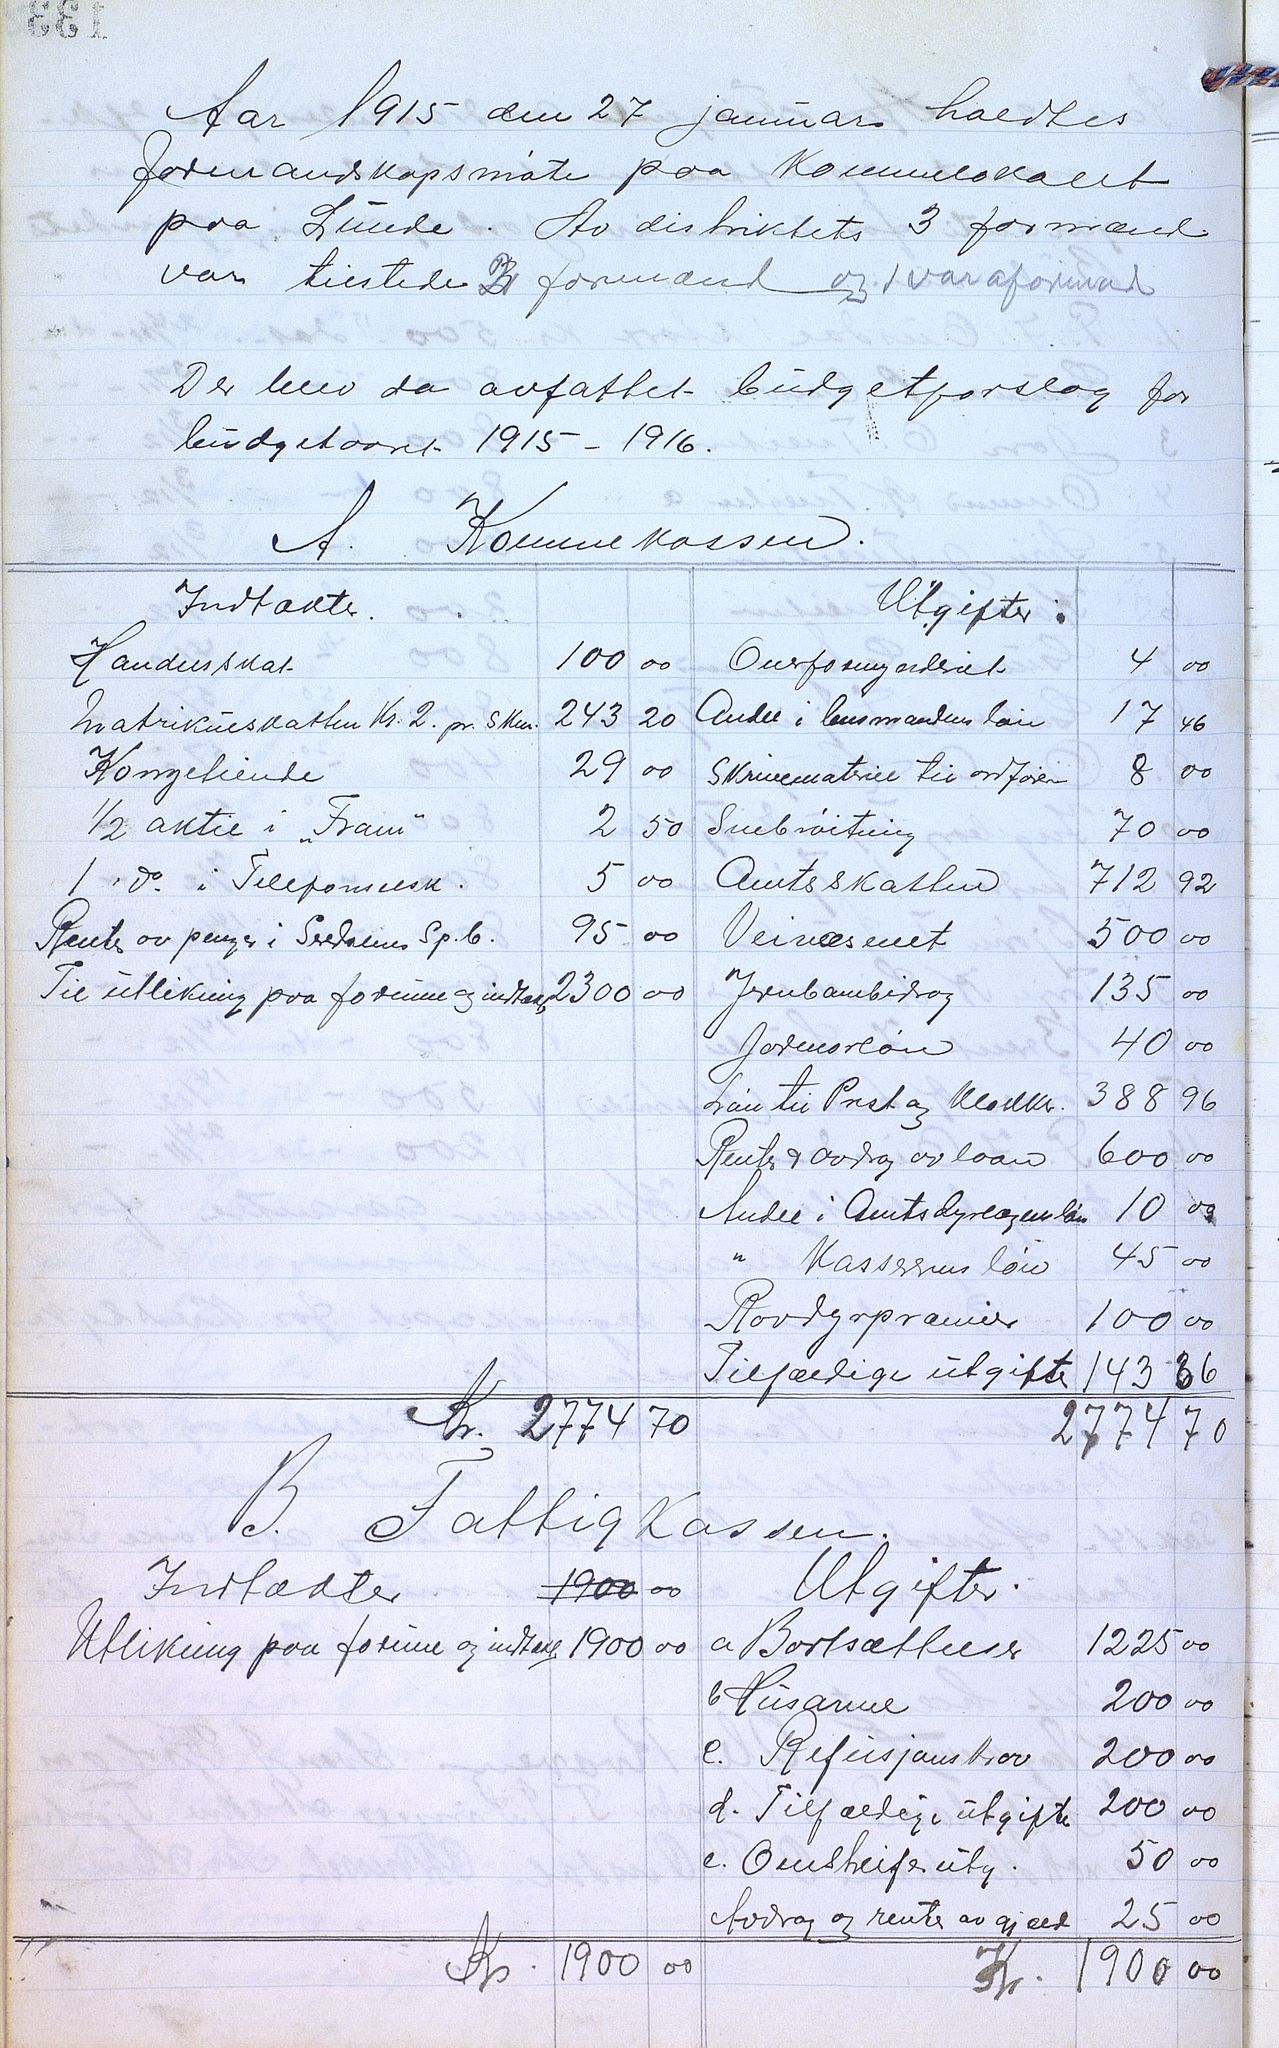 133
Aar 1915 den 27 januar holdtes
formandskapsmöte paa Kommunelokalet
paa Lunde. Av distriktets 3 formænd
var tilstede 2 formænd og 1 varaformad
Der blev da avfattet budgetforslag for
budgetaaret 1915 – 1916.
A. Kommunekassen.
Indtækter. Utgifter.
Handelsskat 100 00 Overformynderiet 4 00
Matrikulskatten Kr. 2. pr. Skm. 243 20 Andel i lensmandens løn 17 46
Kongetiende 29 00 Skrivematriel til ordfører 8 00
1/2 aktie i „Fram" 2 50 Snebröitning 70 00
1 do. i Telefonselsk. 5 00 Amtsskatten 712 92
Renter av penger i Sp.b. 95 00 Veivæsenet 500 00
Til utlikning paa formue og indtækt 2300 00 Jernbanebidrag 135 00
Jormorlön 40 00
Lön til Prest og Klokker. 388 96
Renter & avdrag av laan 600 00
Andel i Amtsdyrlægens lön 10 00
" Kasserens lön 45 00
Rovdyrpræmier 100 00
Tilfældige utgifter 143 36
Kr. 2774 70 2774 70
B. Fattigkassen.
Indtækter 1900 00 Utgifter.
Utlikning paa formue og indtækt 1900 00 a Bortsættelser 1225 00
b Husarme 200 00
c. Refusjonskrav 200 00
d. Tilfældige utgifter 200 00
e. Omstreiferutg. 50 00
Avdrag og renter av gjæld 25 00
Kr. 1900 00 Kr. 1900 00